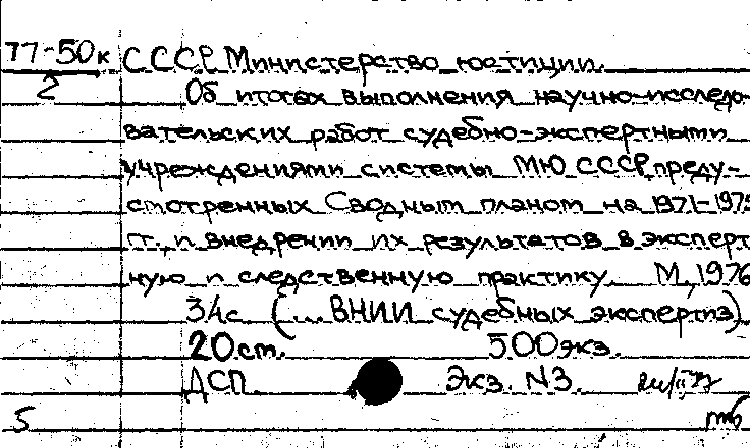 77-50к СССР. Министерство юстиции.
2 Об итогах выполнения научно-исследо-
вательских работ судебно-экспертными
учреждениями системы МЮ СССР, преду-
смотренных Сводным планом на 1971-1975
гг., и внедрении их результатов в эксперт
ную и следственную практику. М, 1976
34с (... ВНИИ судебных экспертиз)
20 ст. 500 экз.
ДСП. Экз. N3.
5